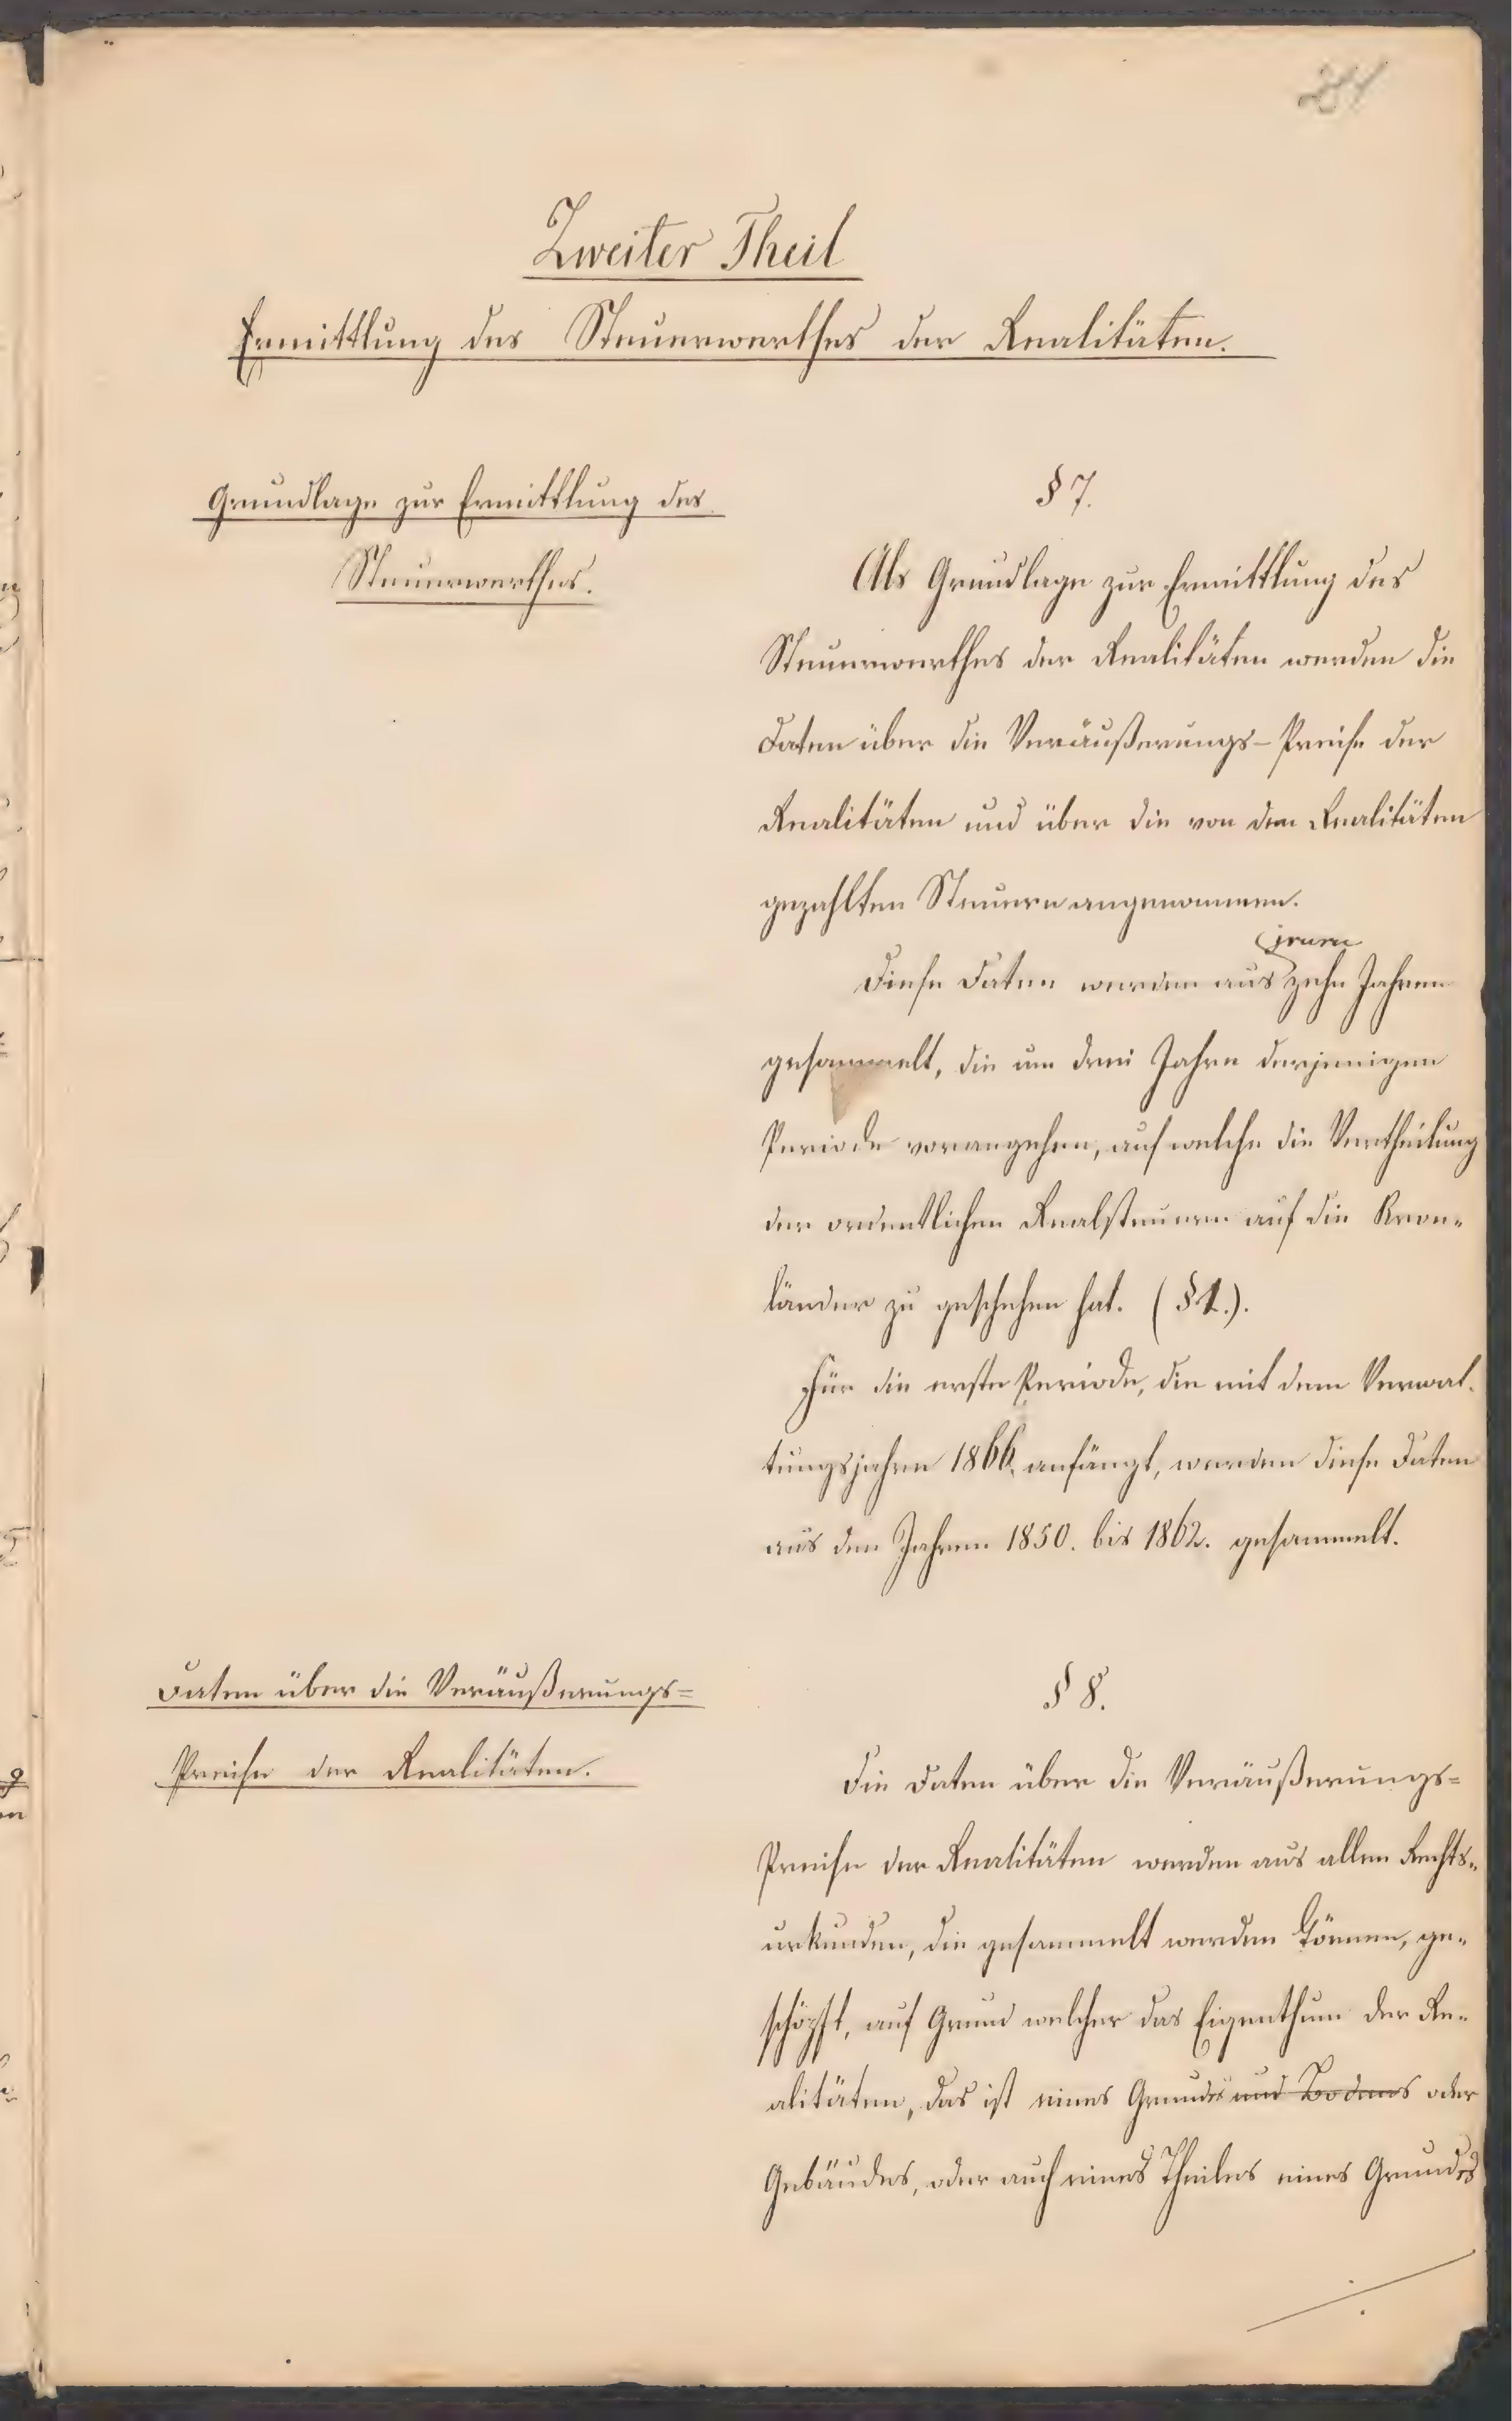 Zweiter Theil
Ermittlung des Steuerwerthes der Realitäten.
Grundlage zur Ermittlung des
Steuerwerthes.
§ 7.
Als Grundlage zur Ermittlung des
Steuerwerthes der Realitäten werden die
Daten über die Veräußerungs-Preise der
Realitäten und über die von den Realitäten
gezahlten Steuern angenommen.
jenen
Diese Daten werden aus zehn Jahren
gesammelt, die um drei Jahre derjenigen
Periode vorangehen, auf welche die Vertheilung
der ordentlichen Realsteuern auf die Kron-
länder zu geschehen hat. (§ 1.).
Für die erste Periode, die mit dem Verwal-
tungsjahre 1866. anfängt, werden diese Daten
aus den Jahren 1850. bis 1862. gesammelt.
Daten über die Veräußerungs=
Preise der Realitäten.
§ 8.
Die Daten über die Veräußerungs=
Preise der Realitäten werden aus allen Rechts-
urkunden, die gesammelt werden können, ge-
schöpft, auf Grund welcher das Eigenthum der Re-
alitäten, das ist eines Grundes und Bodens oder
Gebäudes, oder auch eines Theiles eines Grundes